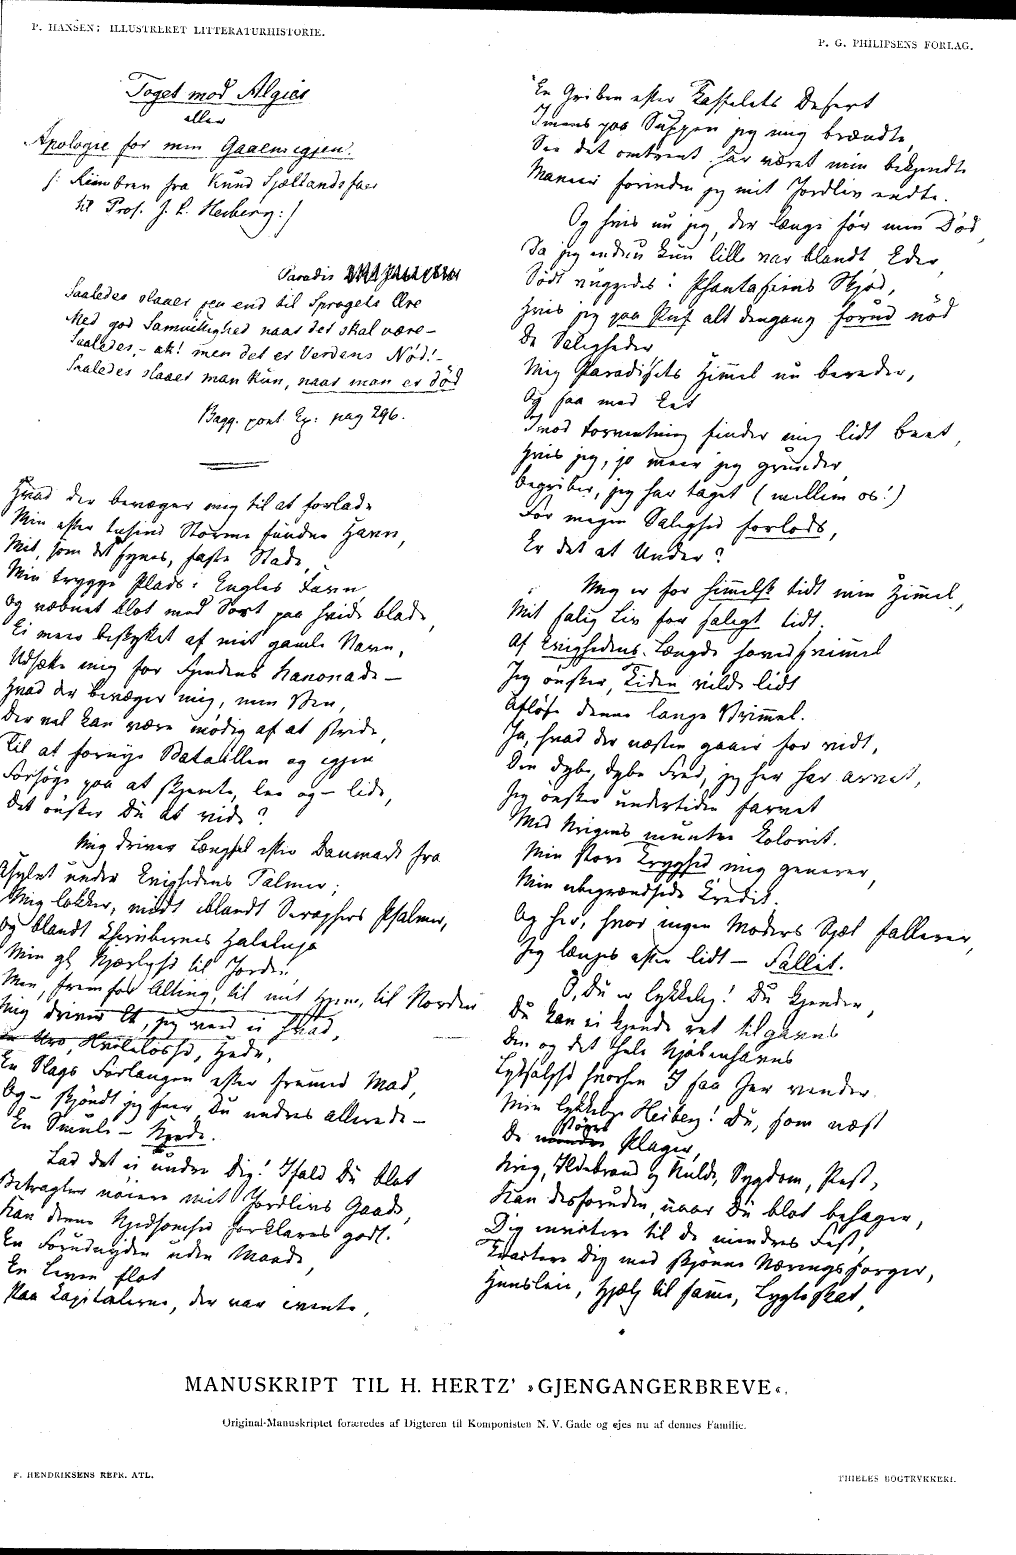 P. HANSEN: ILLUSTRERET LITTERATURHISTORIE.
P. G. PHILIPSENS FORLAG.
Toget mod Algier
eller
Apologie for min Gaaenigjen.
/: Riimbrev fra Knud Sjællandsfar
til Prof. J. L. Heiberg :/
Paradis
Saaledes slaaer jeg end til Sprogets Ære
Med god Samvittighed naar det skal være –
Saaledes, – ak! men det er Verdens Nød! –
Saaledes slaaer man kun, naar man er død
Bagg. poet. Ep: pag 296.
Hvad der bevæger mig til at forlade
Min efter tusind Storme fundne Havn,
Mit, som det synes, faste Stade,
Min trygge Plads i Engles Favn,
Og væbnet blot med Sort paa hvide Blade,
Ei meer beskyttet af mit gamle Navn,
Udsætte mig for Fjendens Kanonade –
Hvad der bevæger mig, min Ven,
Der vel kan være mødig af at stride,
Til at fornye Bataillen og igjen
Forsøge paa at skjemte, lee og – lide,
Det ønsker Du at vide?
Mig driver Længsel efter Danmark fra
Asylet under Evighedens Palmer;
Mig lokker, midt iblandt Seraphers Psalmer,
Og blandt Cherubernes Haleluja
Min gl. Kjærlighed til Jorden,
Men, fremfor Alting, til mit Hjem, til Norden
Mig driver Et, jeg veed ei hvad,
En Uro, Hvileløshed, Hede,
En Slags Forlangen efter fremmed Mad,
Og – skjøndt jeg seer, Du undres allerede –
En Smule – Kjede.
Lad det ei undre Dig! Ifald Du blot
Betragter nøiere mit Jordlivs Gaade,
Kan denne Kjedsomhed forklares godt.
En Forudnyden uden Maade,
En Leven flot
Paa Kapitalerne, der var ivente,
En Griben efter Kassetets Desert
Imens paa Suppen jeg mig brændte,
See det omtrent har været min bekjendte
Maneer forinden jeg mit Jordliv endte.
Og hvis nu jeg, der længe før min Død,
Da jeg endnu kun lille var blandt Eder,
Sødt vuggedes i Phantasiens Skjød,
Hvis jeg paa Puf alt dengang forud nød
De Saligheder
Mig Paradisets Himmel nu bereder,
Og saa med Eet
Imod Formodning finder mig lidt beet,
Hvis jeg, jo meer jeg grunder,
Begriber, jeg har taget (mellem os!)
For megen Salighed forlods,
Er det at Under?
Mig er for himmelsk tidt min Himmel,
Mit salig Liv for saligt tidt.
Af Evighedens Længde hovedsvimmel
Jeg ønsker, Tiden vilde lidt
Afløse denne lange Vrimmel.
Ja, hvad der næsten gaaer for vidt,
Den dybe, dybe Fred, jeg her har arvet,
Jeg ønsker undertiden farvet
Med Krigens muntre Kolorit.
Min store Tryghed mig generer,
Min ubegrændsede Credit.
Og her, hvor ingen Moders Sjæl fallerer,
Jeg længes efter lidt – Fallit.
O, Du er lykkelig! Du kjender,
Du kan ei kjende ret tilgavns
Den og det hele Kjøbenhavns
Lyksalighed hvorhen I saa Jer vender.
Min lykkelige Heiberg! Du, som næst
De større Plager,
Krig, Ildebrand og Kulde, Sygdom, Pest,
Kan desforuden, naar Du blot behager,
Dig invitere til de mindres Fest,
Tractere Dig med skjønne Næringssorger,
Huusleie, Hjelp til samme, Lygteskat,
MANUSKRIPT TIL H. HERTZ' »GJENGANGERBREVE«.
Original-Manuskriptet foræredes af Digteren til Komponisten N. V. Gade og ejes nu af dennes Familie.
F. HENDRIKSENS REPR. ATL.
THIELES BOGTRYKKERI.